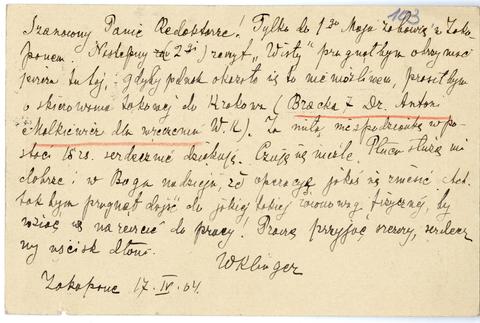 193
Szanowny Panie Redaktorze! Tylko do 1go Maja zabawię w Zako-
panem. Następny (2gi) zeszyt „Wisły” pragnąłbym otrzymać
jeszcze tutaj; gdyby jednak okazało się to niemożliwem, prosiłbym
o skierowanie takowej do Krakowa (Bracka 7 Dr. Antoni
Małkiewicz dla wręczenia W. K.). Za miłą niespodziankę w po-
staci 15 rs. serdecznie dziękuję. Czuję się nieźle. Płuca służą mi
dobrze i w Bogu nadzieja, że operację jakoś się zniesie. Ach
tak bym pragnął dojść do jakiej takiej równowagi fizycznej, by
wziąć się nareszcie do pracy! Proszę przyjąć wyrazy, serdecz-
ny uścisk dłoni.
WKlinger
Zakopane 17. IV. 04.